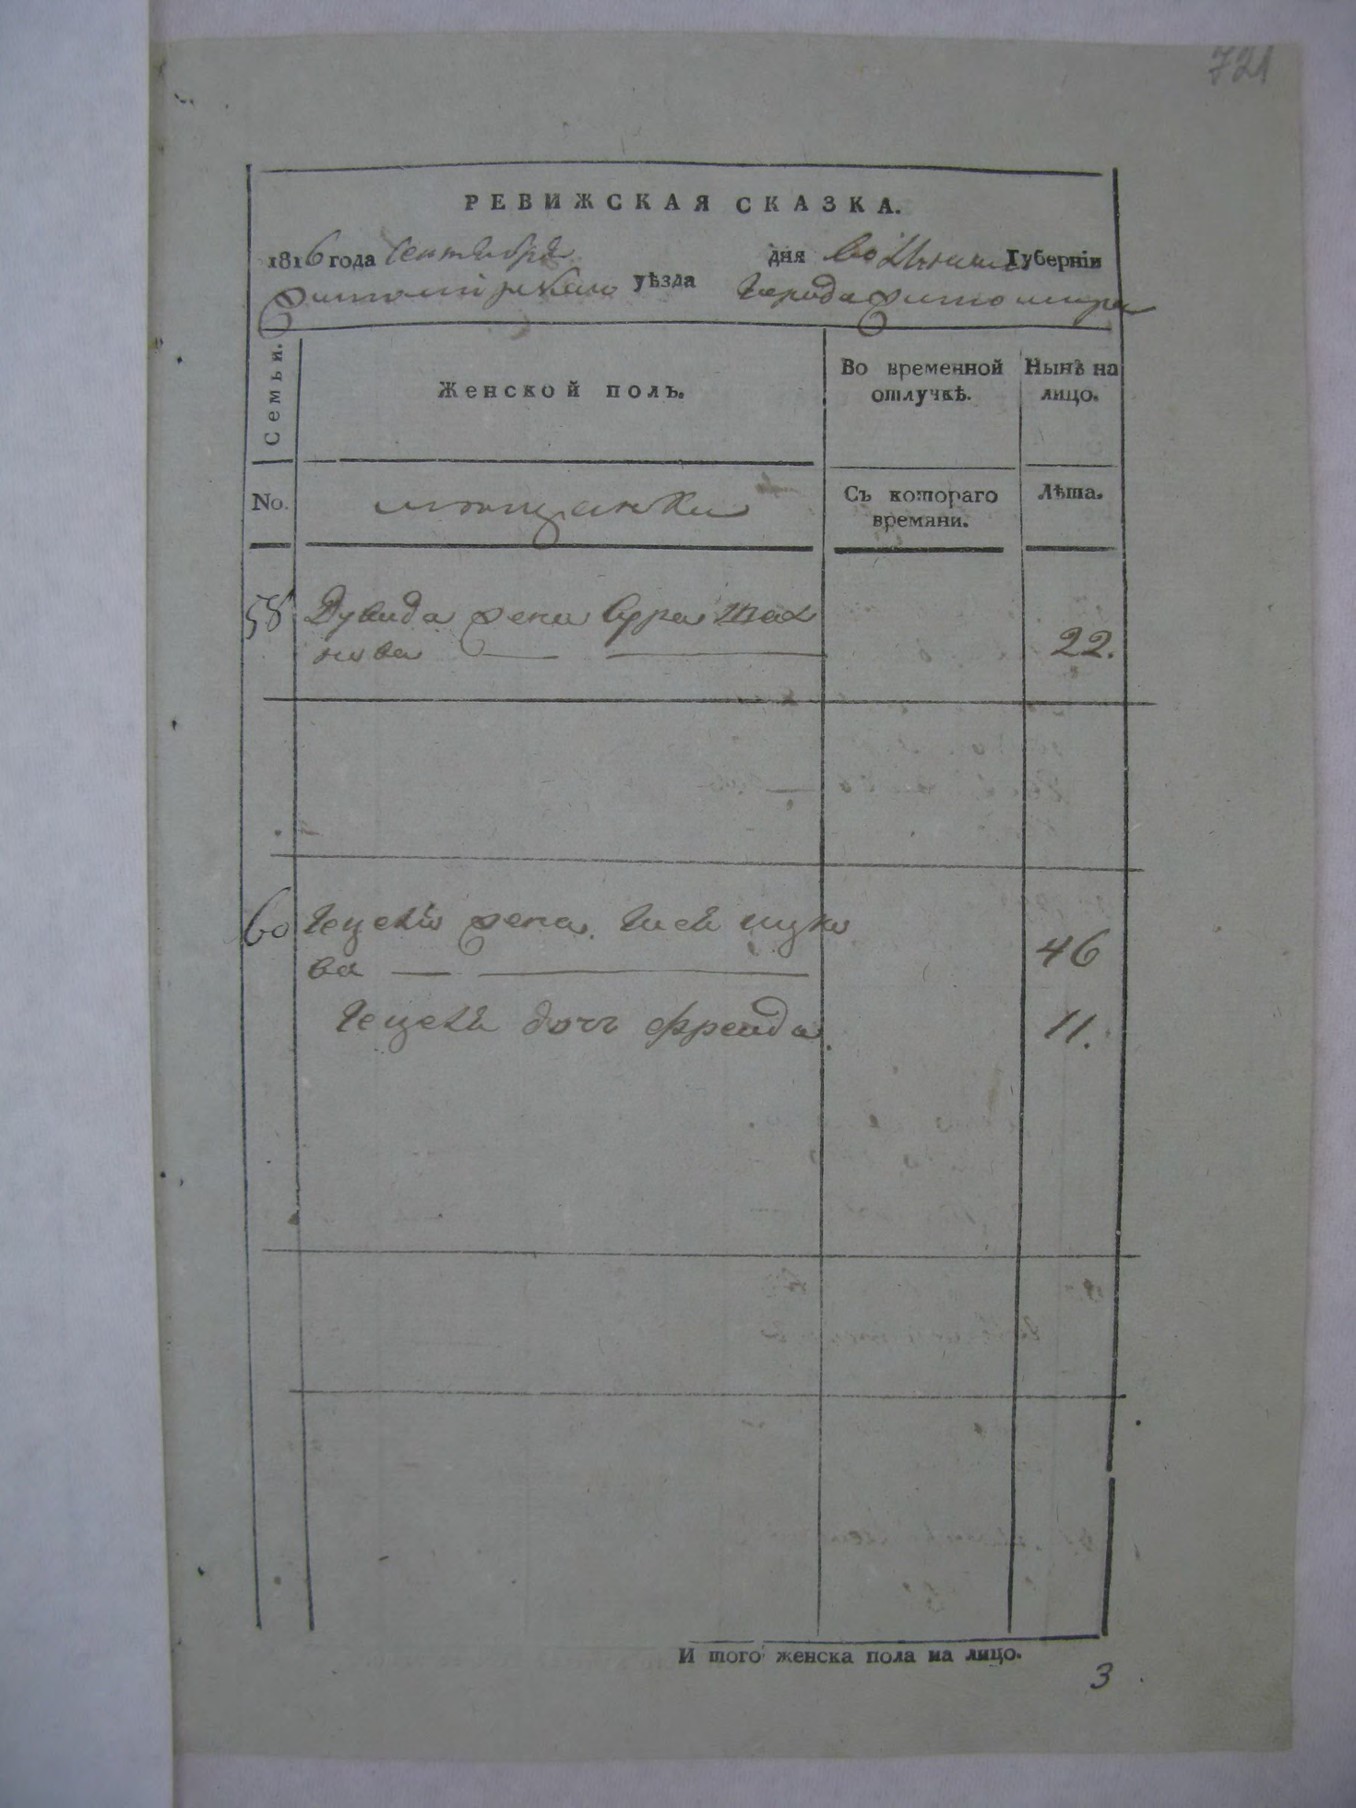 721
РЕВИЖСКАЯ СКАЗКА.
1816 года Сентября дня Волынской Губерніи
Житомирскаго уѣзда Города Житомира
Семьи.
Женской полъ.
Во временной отлучкѣ.
Нынѣ на лицо.
No.
мещанки
Съ котораго времяни.
Лѣта.
58 Дувида жена Сура
22.
60 жена
ва 46
дочь Фрейда 11.
И того женска пола на лицо.
3